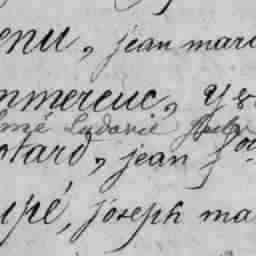 enu, jean mari
nmereuc, y
mé Ludovic
otard, jean
upé, joseph ma